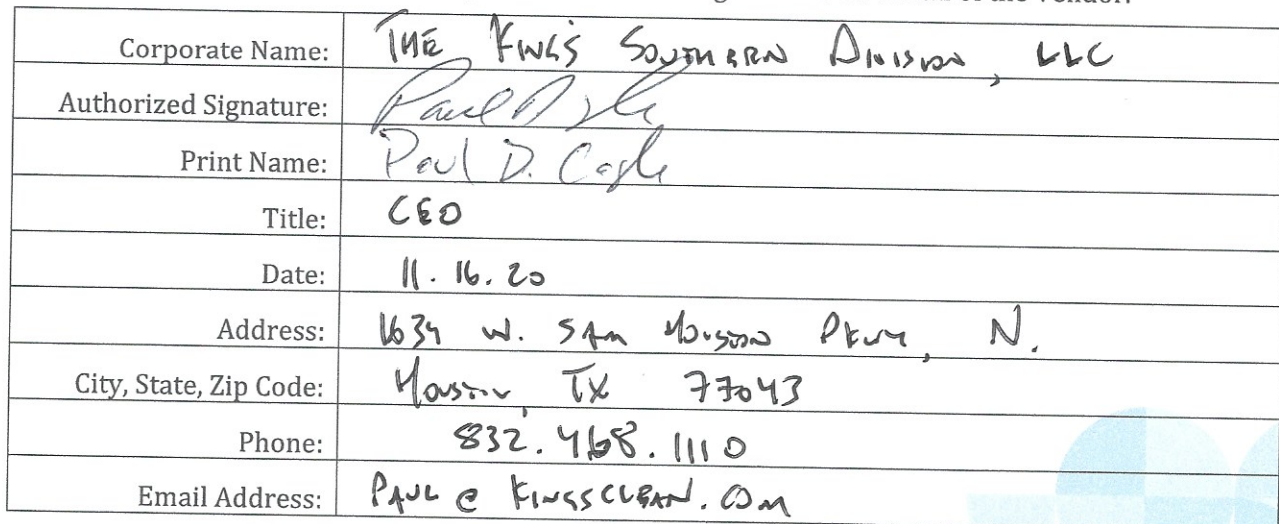 the vendor.
Corporate Name: THE KING'S SOUTHERN DIVISION, LLC
Authorized Signature: Paul D
Print Name: Paul D. Cagle
Title: CEO
Date: 11.16.20
Address: 1634 W. SAM HOUSTON PKWY, N.
City, State, Zip Code: HOUSTON, TX 77043
Phone: 832.468.1110
Email Address: PAUL @ KINGSCLEAN.COM